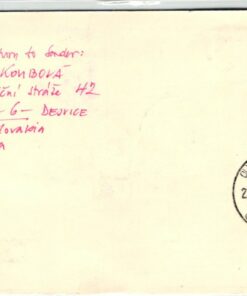 turn to Sender:
KOUBOVÁ
ční stráže 42
- 6 - DEJVICE
lovakia
a
2